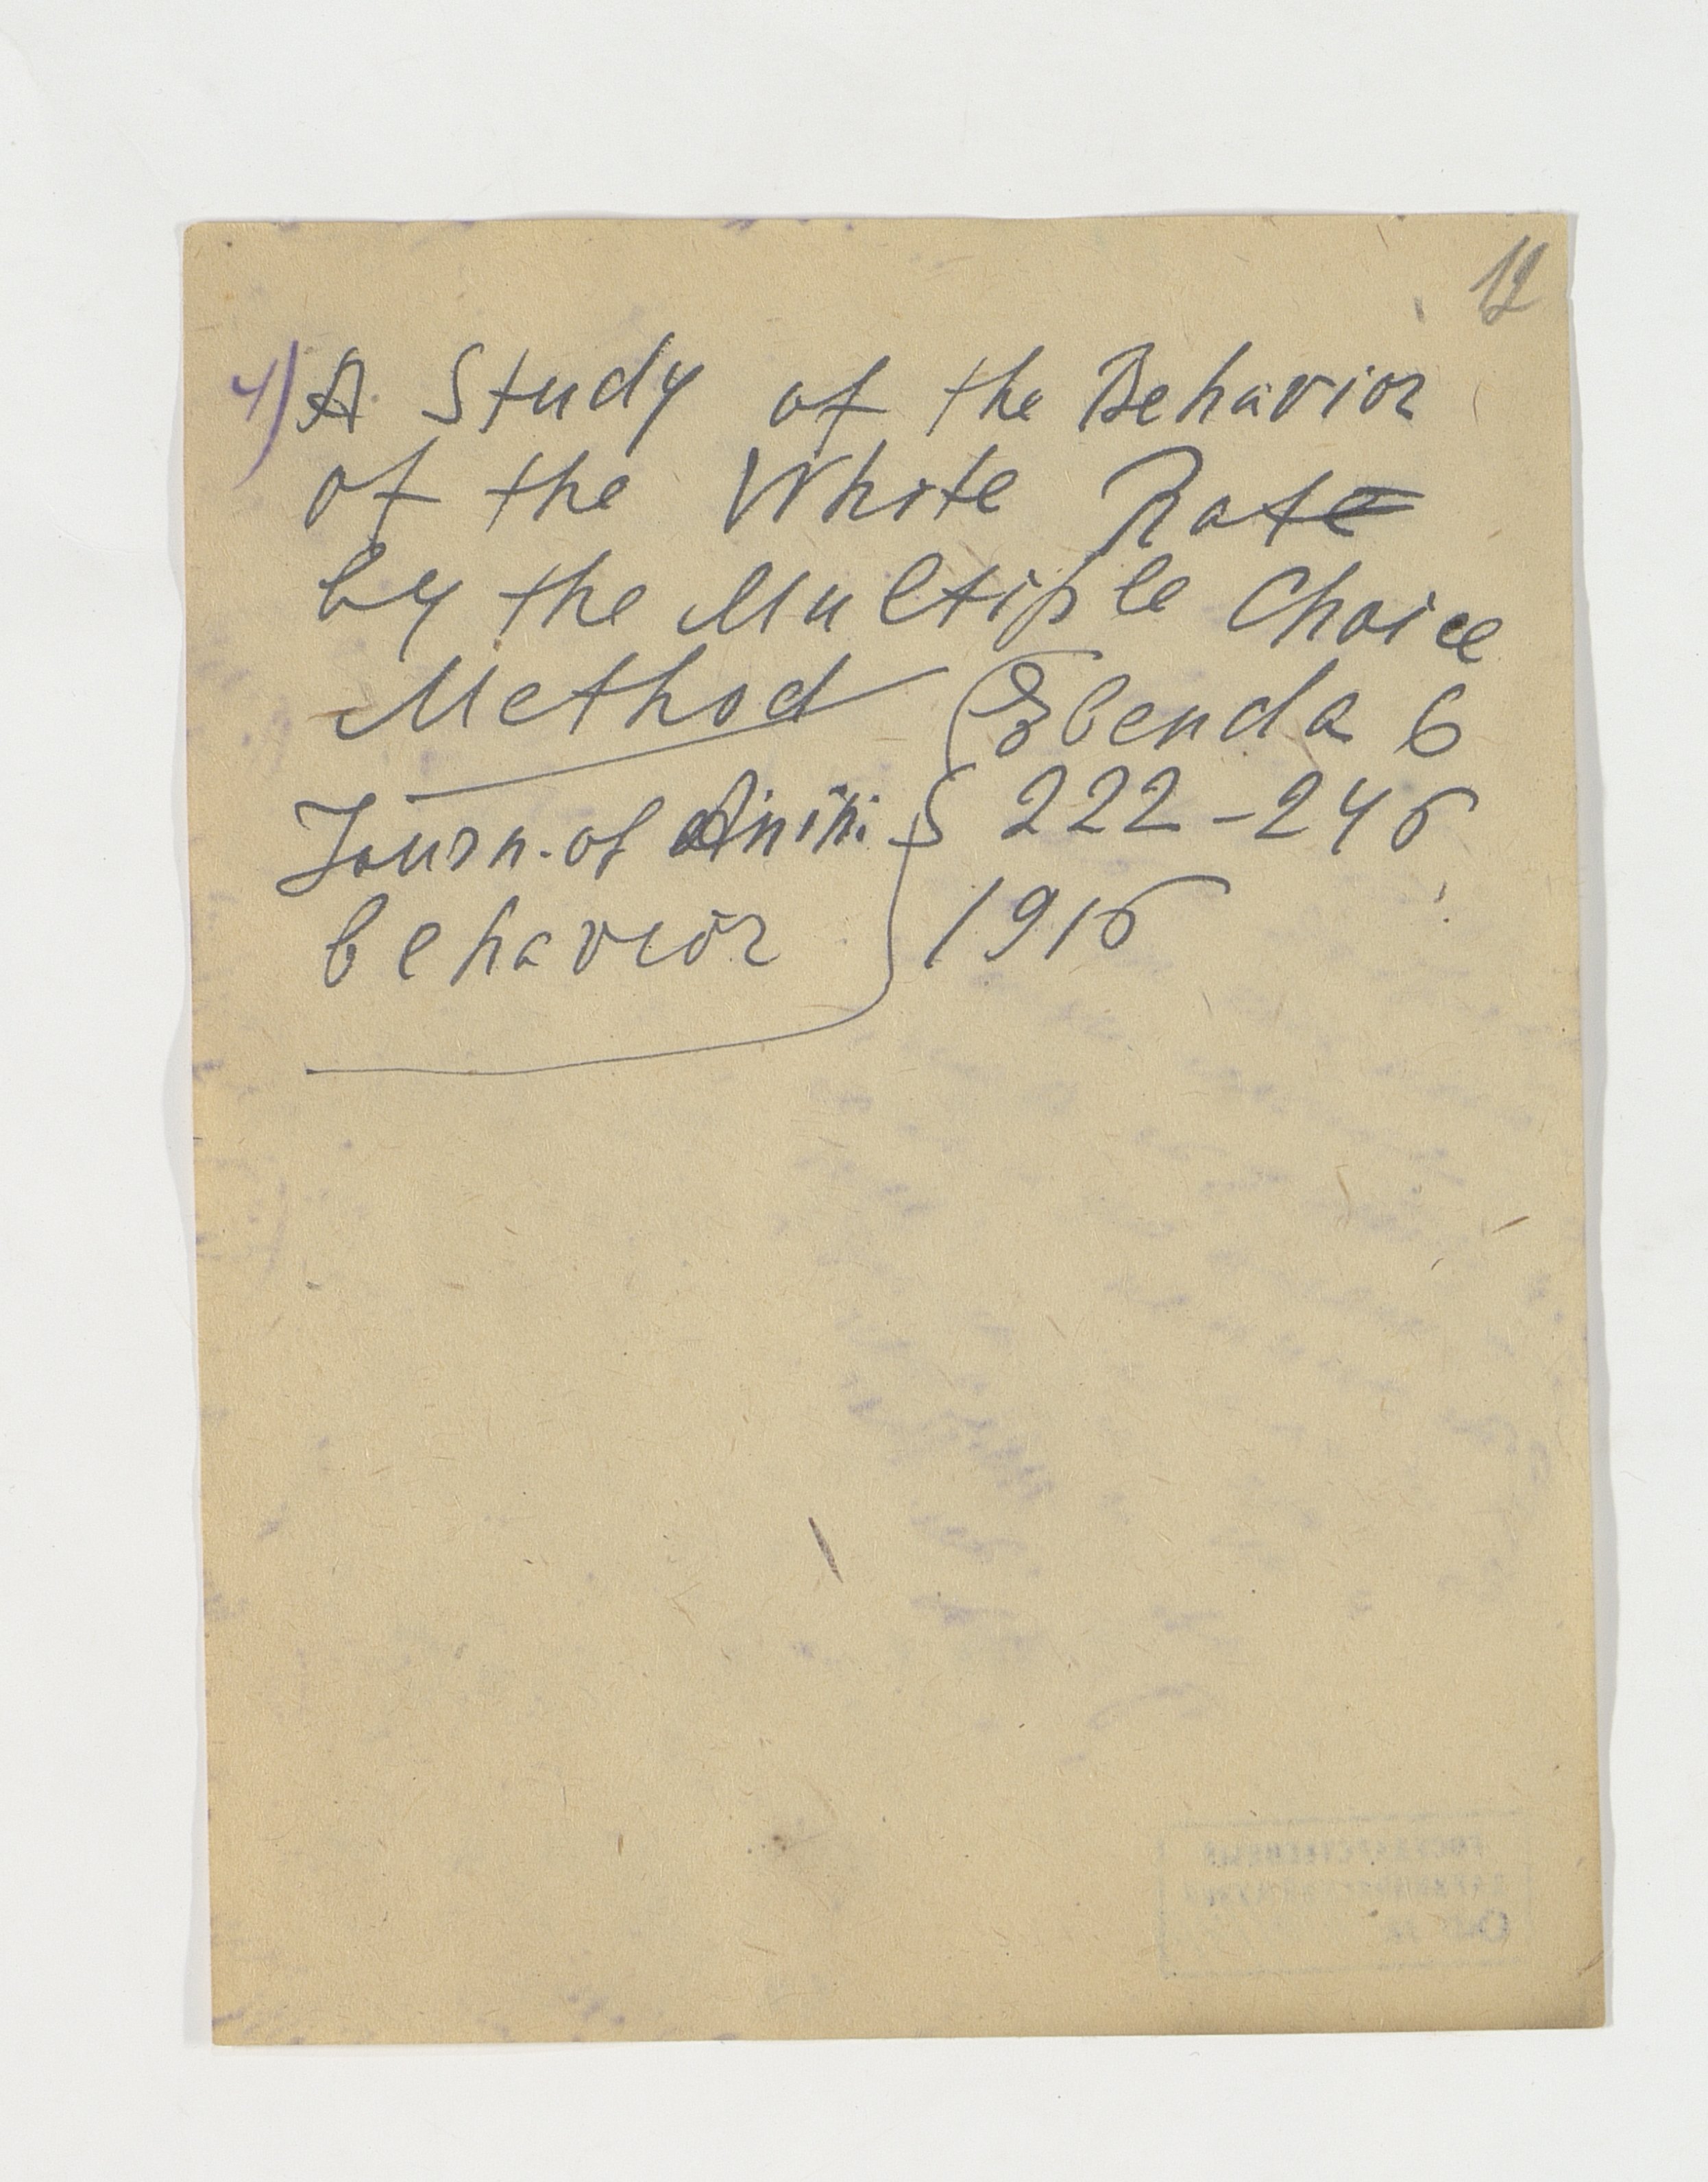 12
4) A Study of the Behavior
of the White Rat
by the Multiple Choice
Method (Ebenda 6
Journ. of Anim. S 222–246
behavior 1916